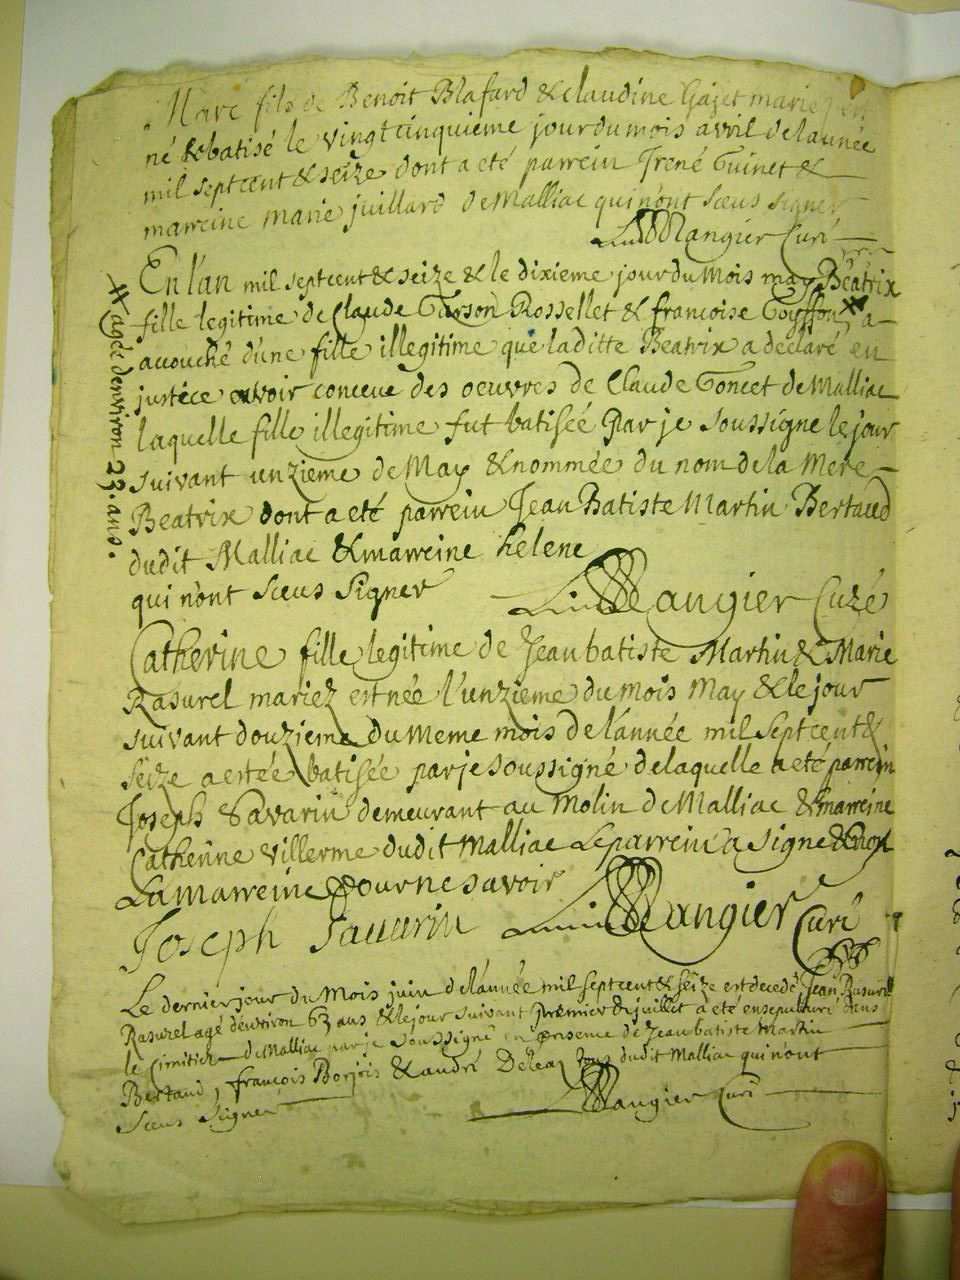 Marc fils de Benoit Blafard & claudine Gazet mariez
né & batisé le vingtcinquieme jour du mois avril de lannée
mil septcent & seize dont a eté parrein Irené Guinet &
marreine marie juillard de Malliac qui n'ont sceus signer
Mangier Curé
En l'an mil septcent & seize & le dixieme jour du mois may Beatrix
fille legitime de Claude Rossellet & francoise Goyffon a
accouché d'une fille illegitime que laditte Beatrix a declaré en
justice avoir conceue des oeuvres de Claude Goncet de Malliac
laquelle fille illegitime fut batisée par je soussigne le jour
suivant unzieme de May & nommée du nom de la Mere
Beatrix dont a eté parrein Jean Batiste Martin Bertaud
dudit Malliac & marreine helene
qui n'ont sceus signer Mangier Curé
# agée denviron 23. ans.
Catherine fille legitime de Jean batiste Martin & Marie
Rasurel mariez est née l'unzieme du mois May & le jour
suivant douzieme du meme mois de l'année mil septcent &
seize a estée batisée par je soussigné de laquelle a eté parrein
Joseph Savarin demeurant au Molin de Malliac & marreine
Catherine Villerme dudit Malliac Le parrein a signe & non
La marreine pour ne savoir
Joseph Sauarin Mangier Curé
Le dernier jour du Mois juin de l'année mil septcent & seize est decedé Jean Rasurel
Rasurel agé d'environ 63 ans & le jour suivant premier de juillet a eté ensepulturé dans
le Cimitier de Malliac par je soussigné en presence de Jean batiste Martin
Bertaud, francois & andré tous dudit Malliac qui n'ont
sceus signer Mangier Curé